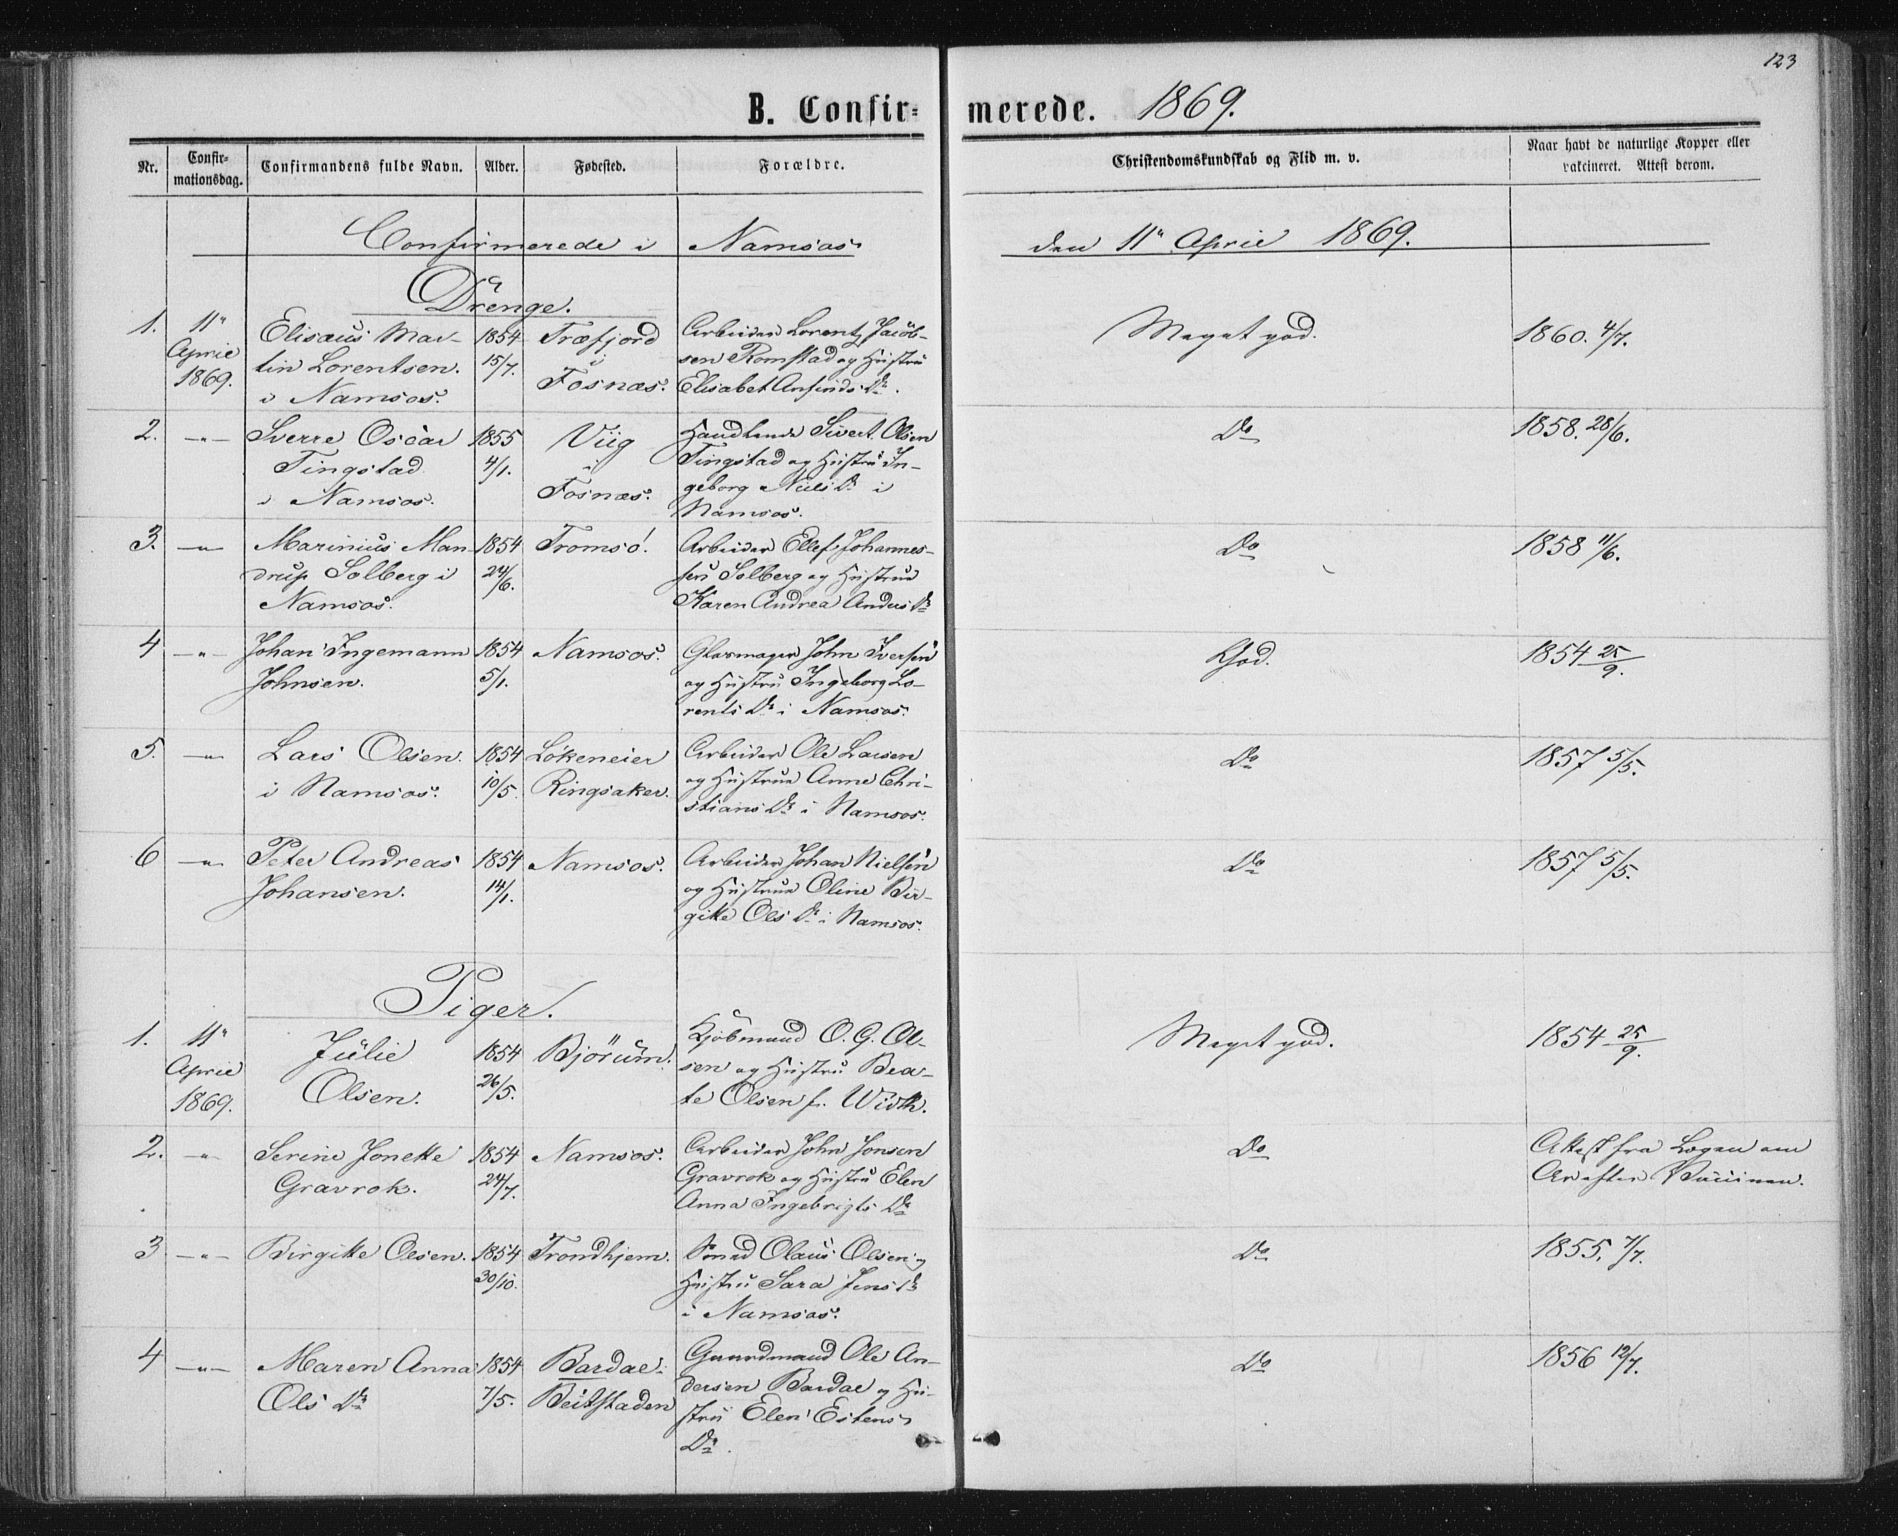 123
B. Confir- merede. 1869.
Nr. Confir-mationsdag. Confirmandens fulde Navn. Alder. Fødested. Forældre. Christendomskundskab og Flid m. v. Naar havt de naturlige Kopper eller vakcineret. Attest derom.
Confirmerede i Namsos den 11te April 1869.
Drenge.
1. 11te Elisæus Mar- 1854 Træfjord Arbeider Lorentz Jacob- Meget god. 1860. 4/7.
April tin Lorentsen. 15/7. i sen Romstad og Hustru
1869. i Namsos. Fosnæs. Elisabet Anfinds Dr.
2. -"- Sverre Oscar 1855 Viig Handlende Sivert Olsen Do 1858. 28/6.
Tingstad 4/1. i Tingstad og Hustru In-
i Namsos. Fosnæs. geborg Niels Dr i
Namsos.
3. -"- Marinius Man- 1854 Tromsö. Arbeider Ellef Johannes- Do 1858 11/6.
drup Solberg i 24/6. sen Solberg og Hustrue
Namsos. Karen Andrea Anders Dr
4 -"- Johan Ingemann 1854 Namsos. Glasmager John Iversen God. 1854 25/9.
Johnsen. 5/1. og Hustru Ingeborg Lo-
rents Dr i Namsos.
5. -"- Lars Olsen 1854 Lökeneier Arbeider Ole Larsen Do 1857 5/5.
i Namsos. 10/5. Ringsaker. og Hustrue Anne Chri-
stians Dr i Namsos.
6 -"- Peter Andreas 1854 Namsos. Arbeider Johan Nielsen Do 1857 5/5.
Johansen. 14/1. og Hustrue Oline Bir-
gitte Ols Dr i Namsos.
Piger.
1. 11te Julie 1854 Bjørum. Kjøbmand O. G. Ol- Meget god. 1854 25/9.
April Olsen. 26/5. sen og Hustru Bea-
1869. te Olsen f. Width.
2. -"- Serine Jonette 1854 Namsos. Arbeider John Jonsen Do Attest fra Lægen om
Gravrok. 24/7. Gravrok og Hustru Elen Ar efter Vaccinen.
Anna Ingebrigts Dr
3 -"- Birgitte Olsen. 1854 Trondhjem. Smed Olaus Olsen og Do 1855. 7/7.
30/10. Hustru Sara Jens Dr
i Namsos.
4 -"- Maren Anna 1854 Bardal Gaardmand Ole An- Do 1856 12/7.
Ols Dr 7/5. Beitstaden dersen Bardal og Hu-
stru Elen Estens
Dr.